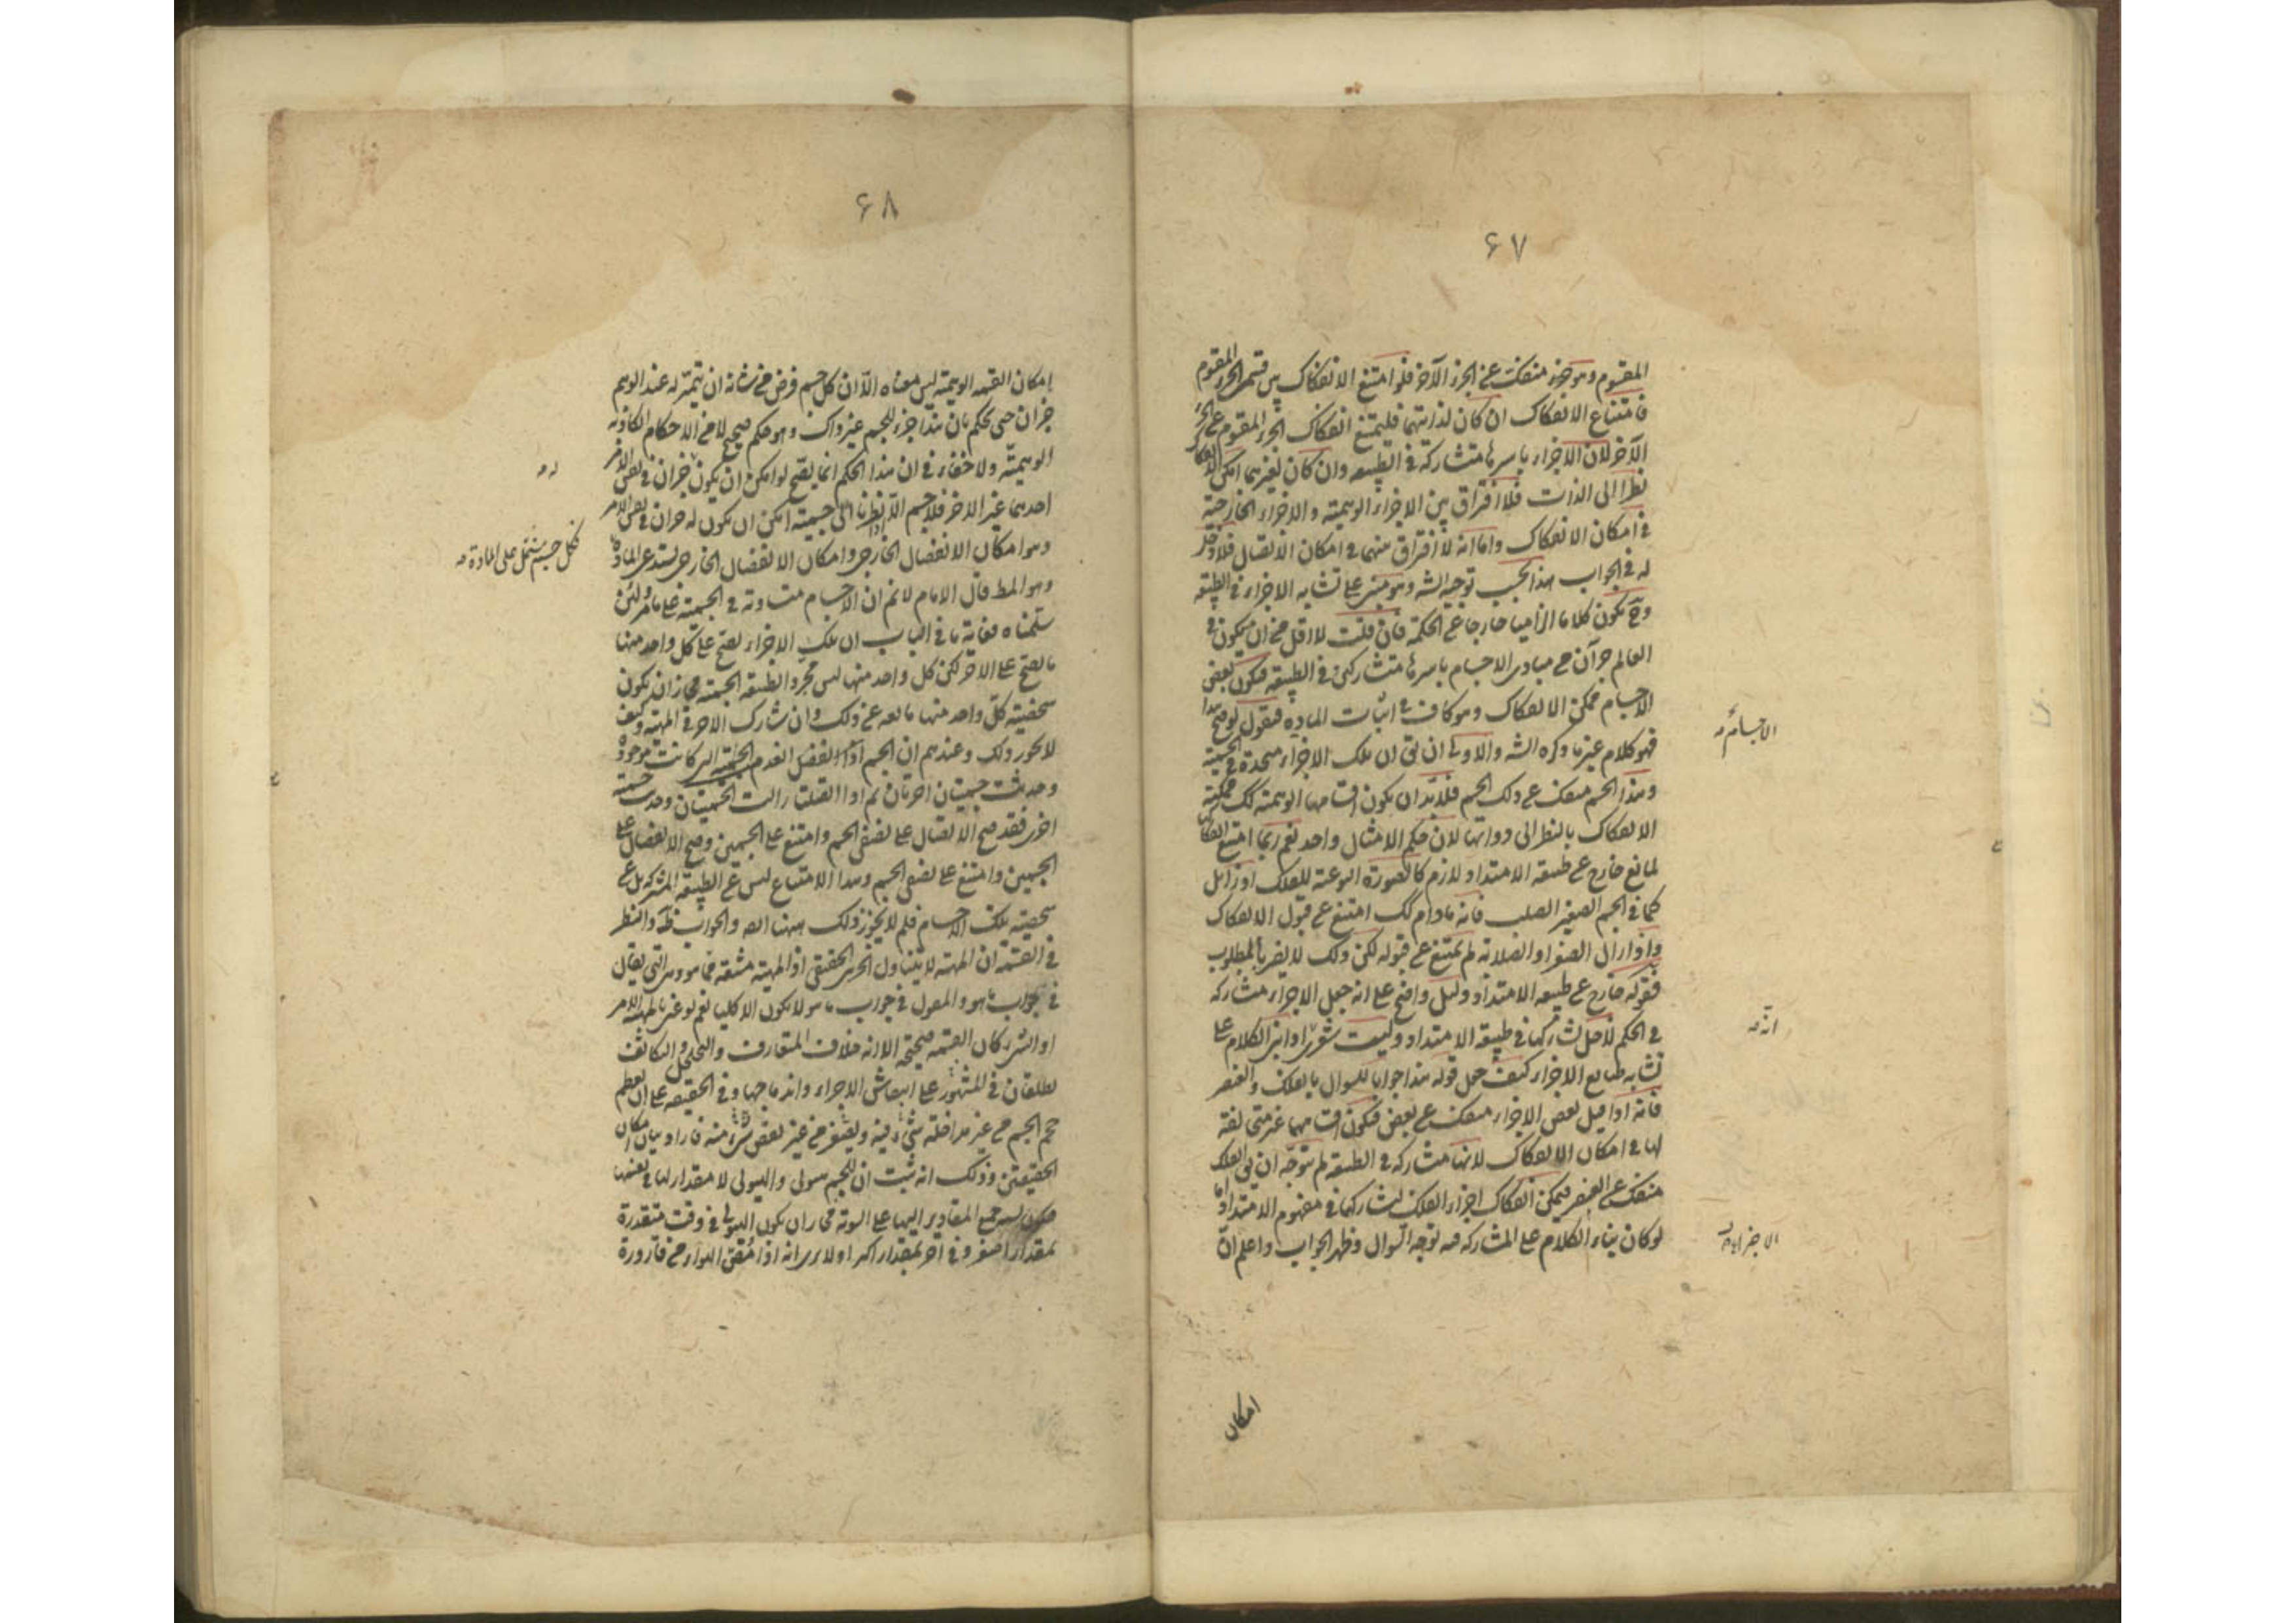 ٦٧
المقسوم وهو جزء منفك عن الجزء الآخر فلو امتنع الانفكاك بين قسمى الجزء المقسوم
فامتناع الانفكاك ان كان لذاتهما فليمتنع انفكاك الجزء المقسوم عن الجزء
الآخر لان الاجزاء باسرها متشاركة فى الطبيعه وان كان لغيرهما امكن الانفكاك
نظرا الى الذات فلا افتراق بين الاجزاء الوهمية والاجزاء الخارجية
فى امكان الانفكاك واما انه لا افتراق بينهما فى امكان الاتصال فلا دخل
له فى الجواب هذا بحسب توجيه الشه وهو مبنى على تشابه الاجزاء فى الطبيعه
وح يكون كلاما الزاميا خارجا عن الحكمة فان قلت لا اقل من ان يكون فى
العالم جزآن من مبادى الاجسام باسرها متشاركين فى الطبيعه فيكون بعض
الاجسام ممكن الانفكاك وهو كاف فى اثبات المادة فنقول لو صح هذا
فهو كلام غير ما ذكره الشه والاولى ان يق ان تلك الاجزاء متحدة فى الجسمية
وهذا الجسم منفك عن ذلك الجسم فلابد ان يكون اقسامها الوهمية كك ممكنة
الانفكاك بالنظر الى ذواتها لان حكم الامثال واحد نعم ربما امتنع انفكاك
لمانع خارج عن طبيعه الامتداد لازم كالصورة النوعية للفلك او زائل
كما فى الجسم الصغير الصلب فانه مادام كك امتنع عن قبول الانفكاك
واذا زال الصغر او الصلابه لم يمتنع عن قبوله لكن ذلك لا يضر بالمطلوب
فقوله خارج عن طبيعه الامتداد دليل واضح على انه جعل الاجزاء مشاركه
فى الحكم لاجل تشاركها فى طبيعه الامتداد وليت شعرى اذا بنى الكلام على
تشابه طبايع الاجزاء كيف جعل قوله هذا جوابا للسوال بالفلك والعنصر
فانه اذا قيل بعض الاجزاء منفك عن بعض فيكون اقسامها غير متخالفة
لها فى امكان الانفكاك لانها مشاركه فى الطبيعه لم يتوجه ان يق الفلك
منفك عن العنصر فيمكن انفكاك اجزاء الفلك لتشاركهما فى مفهوم الامتداد اما
لو كان بناء الكلام على المشاركه فيه توجه السوال وظهر الجواب واعلم ان
امكان
٦٨
امكان القسمه الوهمية ليس معناه الا ان كل جسم فرض من شانه ان يتميز له عند الوهم
جزآن حتى يحكم بان هذا جزء للجسم غير ذاك وهو حكم صحيح لا من الاحكام الكاذبه
الوهمية ولا خفاء فى ان هذا الحكم انما يصح لو امكن ان يكون جزآن فى نفس الامر
احدهما غير الاخر فلا جسم الا اذا نظرنا الى جسميته امكن ان يكون له جزآن فى نفس الامر
وهو امكان الانفصال الخارجى وامكان الانفصال الخارجى يستدعى المادة
فكل جسم يشتمل على المادة مه
وهو المط قال الامام لا نم ان الاجسام متساوية فى الجسمية على ما مر ولئن
سلمناه فغاية ما فى الباب ان تلك الاجزاء يصح على كل واحد منها
ما يصح على الاخر لكن كل واحد منها ليس مجرد الطبيعه الجسمية فجاز ان يكون
شخصية كل واحد منها مانعه عن ذلك وان شارك الاخر فى المهيه وكيف
لا يجوز ذلك وعندهم ان الجسم اذا انفصل انعدم الجسمية التى كانت موجودة
وحدثت جسميتان اخريان ثم اذا اتصلتا زالت الجسميتان وحدثت جسمية
اخرى فقد صح الاتصال على نصفى الجسم وامتنع على الجسمين وصح الانفصال على
الجسمين وامتنع على نصفى الجسم وهذا الامتناع ليس عن الطبيعه المشتركه بل عن
شخصية تلك الاجسام فلم لا يجوز ذلك ههنا ايضا والجواب ظ والنظر
فى القسمه ان المهيه لا يتناول الجزئى الحقيقى اذ المهية مشتقه من ما هو وهى التى يقال
فى جواب ما هو والمقول فى جواب ما هو لا يكون الا كليا نعم لو عنى بالمهية الامر
او الشىء كان القسمه صحيحة الا انه خلاف المتعارف والتخلخل والتكاثف
يطلقان فى المشهور على انتفاش الاجزاء واندماجها وفى الحقيقه على ان يعظم
حجم الجسم من غير مداخلة شىء فيه ويصغر من غير نقص شىء منه فاراد بيان امكان
الحقيقيين وذلك انه ثبت ان للجسم هيولى والهيولى لا مقدار لها فى نفسها
فيكون نسبه جميع المقادير اليها على السويه فجاز ان يكون الهيولى فى وقت متقدرة
بمقدار اصغر وفى آخر بمقدار اكبر اولا يرى انه اذا مُصّ الهواء من قارورة